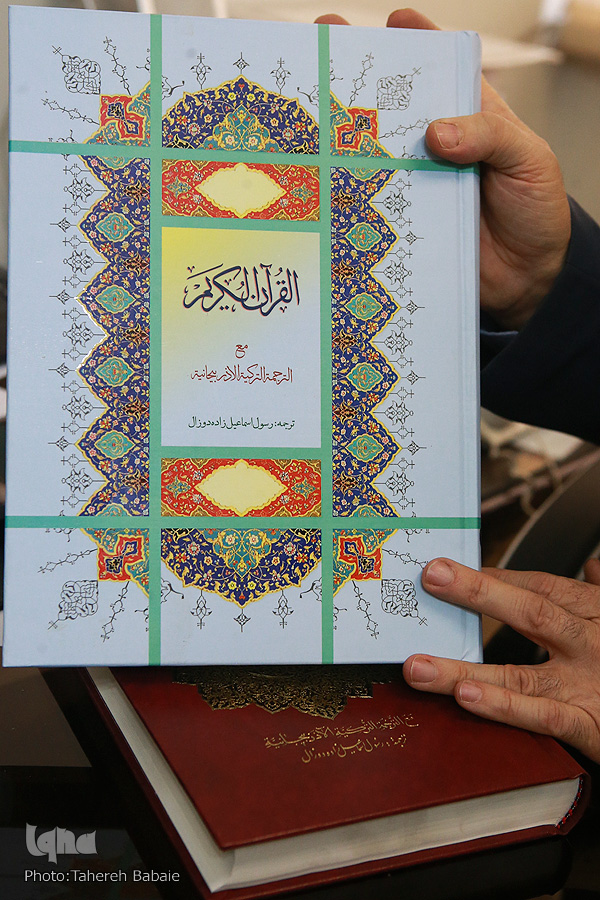 القرآن الكريم
مع
الترجمة التركية الاذربيجانية
ترجمه: رسول اسماعيل زاده دوزال
مع الترجمة التركية الآذربيجانية
ترجمه: رسول اسماعيل زاده دوزال
iqna
Photo:Tahereh Babaie